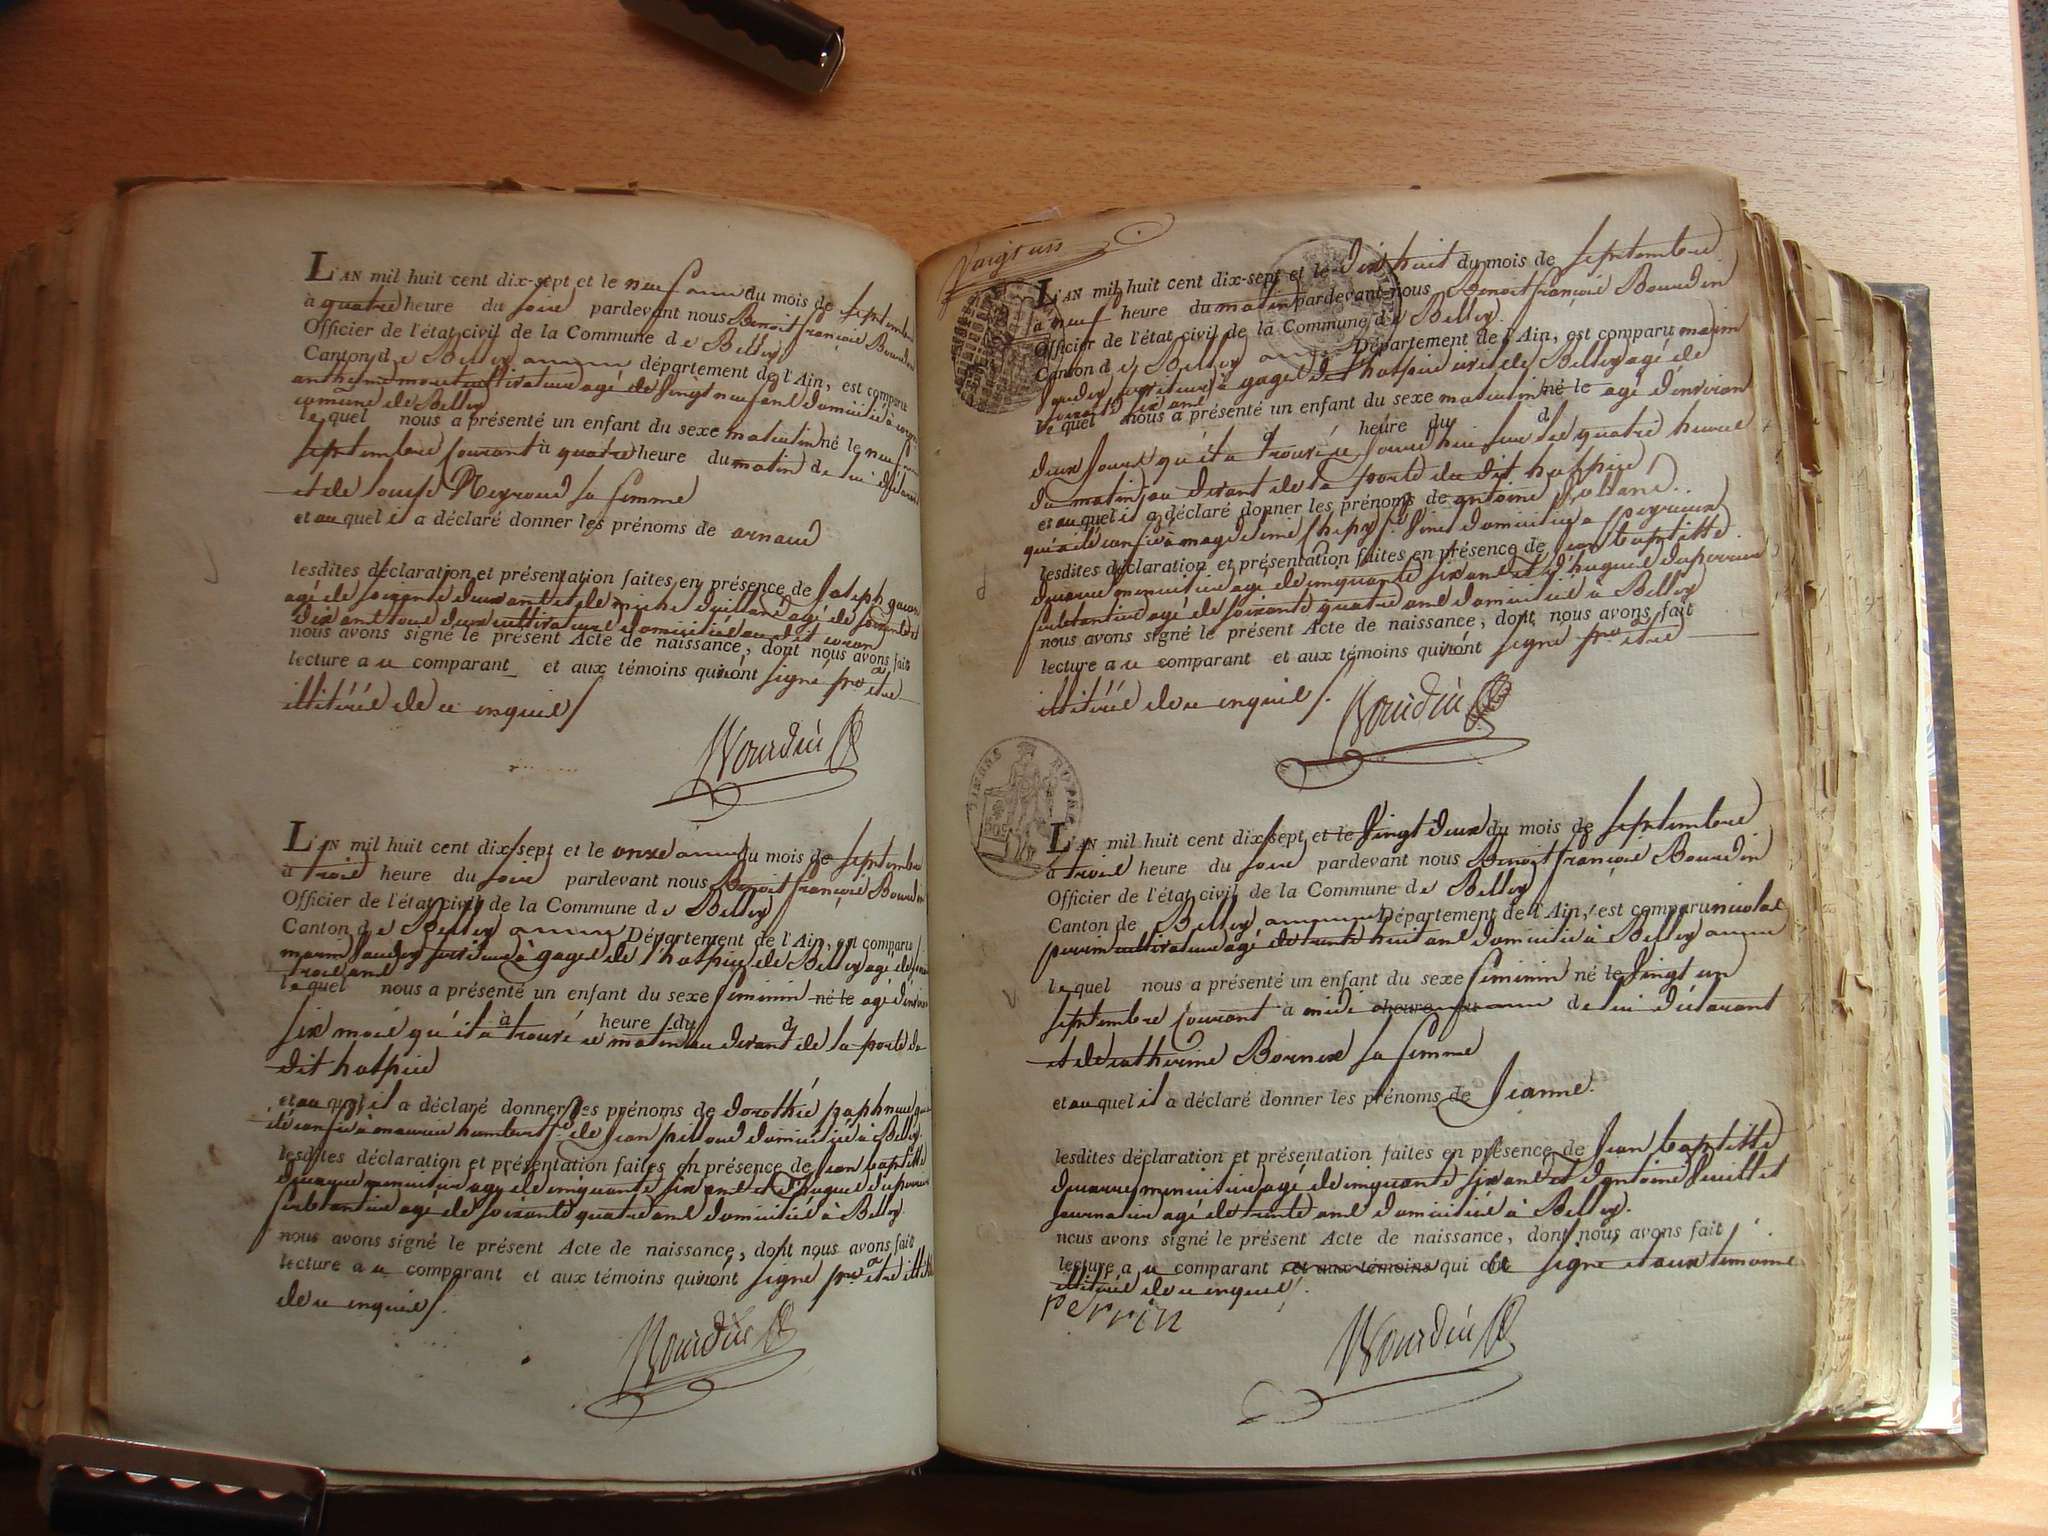 L'AN mil huit cent dix-sept et le neuf du mois de septembre
à quatre heure du soir pardevant nous Benoit françois Bourdin
Officier de l'état civil de la Commune de Belley
Canton de Belley département de l'Ain, est comparu
anthelme cultivateur agé de vingt neuf ans domicilié à
comune de Belley
le quel nous a présenté un enfant du sexe masculin né le neuf
septembre courant à quatre heure du matin de lui déclarant
et de louise Neyroud sa femme
et au quel il a déclaré donner les prénoms de arnaud
lesdites déclaration et présentation faites en présence de Joseph
agé de soixante deux ans et de agé de soixante
dix ans tous deux cultivateurs domiciliés au dit
nous avons signé le présent Acte de naissance, dont nous avons fait
lecture au comparant et aux témoins qui n'ont signé pour être
illitérés de ce enquis
Bourdin
L'AN mil huit cent dix-sept et le onze du mois de septembre
à trois heure du soir pardevant nous Benoit françois Bourdin
Officier de l'état civil de la Commune de Belley
Canton de Belley Département de l'Ain, est comparu
serviteur à gages de l'hospice de Belley agé de
trois ans
le quel nous a présenté un enfant du sexe feminin né le agé d'environ
à heure du d
six mois qu'il a trouvé ce matin au devant de la porte du
dit hospice
et au quel il a déclaré donner les prénoms de dorothé paphnuce qui a
été confié à humbert fe de Jean domicilié à Belley
lesdites déclaration et présentation faites en présence de Jean baptiste
menuisier agé de cinquante six ans et d'hugues
agé de soixante quatre ans domiciliés à Belley
nous avons signé le présent Acte de naissance, dont nous avons fait
lecture au comparant et aux témoins qui n'ont signé pour être
de ce enquis.
Bourdin
L'AN mil huit cent dix-sept et le dix huit du mois de septembre
à neuf heure du matin pardevant nous Benoit françois Bourdin
Officier de l'état civil de la Commune de Belley
Canton de Belley Département de l'Ain, est comparu
serviteur à gages de l'hospice de Belley agé de
soixante six ans
le quel nous a présenté un enfant du sexe masculin né le agé d'environ
à heure du d
deux jours qu'il a trouvé ce jourd'hui sur les quatre heures
du matin au devant de la porte du dit hospice
et au quel il a déclaré donner les prénoms de antoine
qui a été confié à domicilié à peyrieux
lesdites déclaration et présentation faites en présence de jean baptiste
menuisier agé de cinquante six ans et d'hugues
agé de soixante quatre ans domicilié à Belley
nous avons signé le présent Acte de naissance, dont nous avons fait
lecture au comparant et aux témoins qui n'ont signé pour être
illitérés de ce enquis.
Bourdin
L'AN mil huit cent dix-sept et le vingt deux du mois de septembre
à trois heure du soir pardevant nous Benoit françois Bourdin
Officier de l'état civil de la Commune de Belley
Canton de Belley Département de l'Ain, est comparu nicolas
perrin cultivateur agé de trente huit ans domicilié à Belley
le quel nous a présenté un enfant du sexe feminin né le vingt un
septembre courant à midi heure du de lui déclarant
et de catherine sa femme
et au quel il a déclaré donner les prénoms de Jeanne.
lesdites déclaration et présentation faites en présence de Jean baptiste
menuisier agé de cinquante six ans et d'antoine
journalier agé de trente ans domiciliés à Belley.
nous avons signé le présent Acte de naissance, dont nous avons fait
lecture au comparant et aux témoins qui ont signé et aux témoins
illitérés de ce enquis.
Perrin
Bourdin